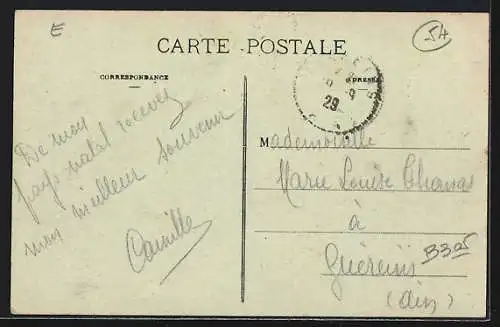 E
54
CARTE POSTALE
CORRESPONDANCE
ADRESSE
29
De mon
pays natal recevez
mon meilleur souvenir
Camille
Mademoiselle
Marie Louise
à
Guéreins
(Ain)